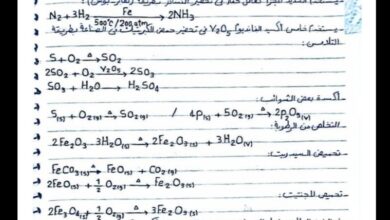 N₂ + 3H₂ Fe → 500°C / 200 atm 2NH₃
ـ يستخدم خامس أكسيد الفانديوم V₂O₅ في تحضير حمض الكبريتيك في الصناعة بطريقة
التلامس:
S + O₂ △→ SO₂
2SO₂ + O₂ V₂O₅→ 2SO₃
SO₃ + H₂O → H₂SO₄
ـ أكسدة بعض الشوائب:
S(s) + O₂(g) △→ SO₂(g) / 4P(s) + 5O₂(g) △→ 2P₂O₅(v)
التخلص من الرطوبة:
2Fe₂O₃·3H₂O(s) △→ 2Fe₂O₃(s) + 3H₂O(v)
تحميص السيدريت:
FeCO₃(s) △→ FeO(s) + CO₂(g)
2FeO(s) + ½O₂(g) △→ Fe₂O₃(s)
تحميص المجنتيت:
2Fe₃O₄(s) + ½O₂(g) △→ 3Fe₂O₃(s)